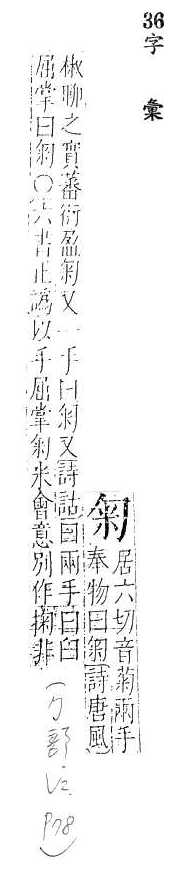 36字彙
匊居六切音菊兩手
奉物曰匊詩唐風
椒聊之實蕃衍盈匊又一手曰匊又詩詁曰兩手曰臼
屈掌曰匊○六書正譌以手屈掌匊米會意別作掬非
(勹部
P78)